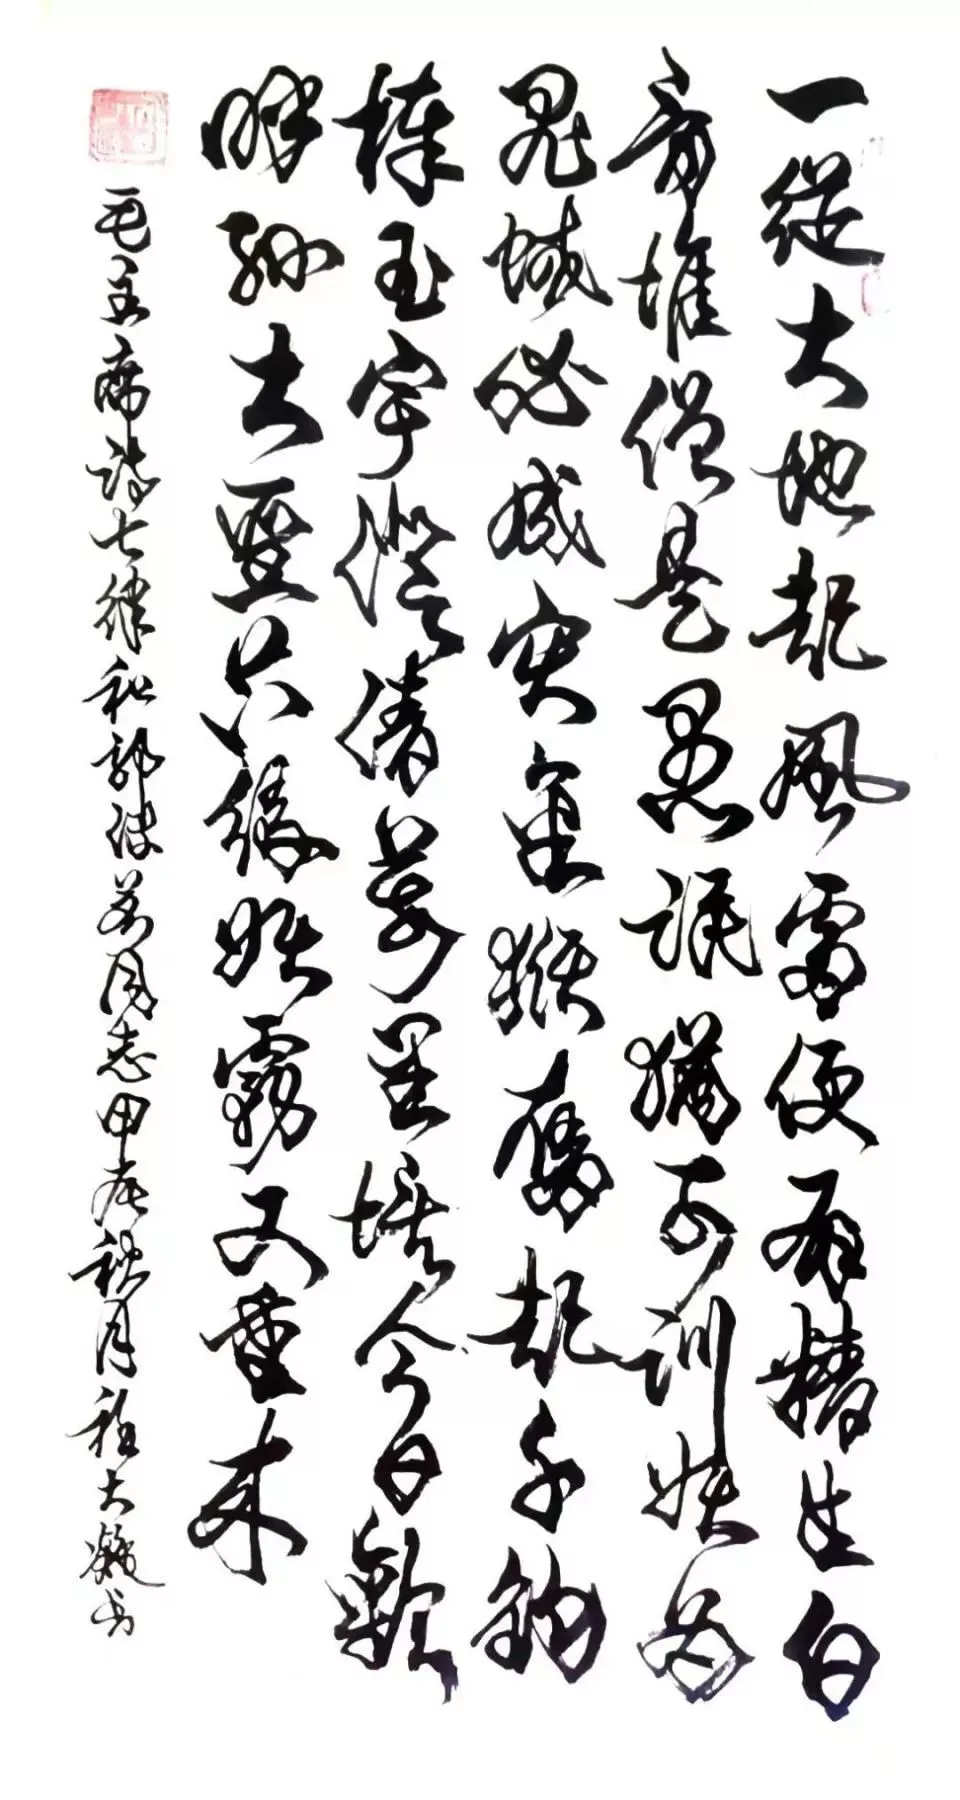 一從大地起風雷便有精生白
骨堆僧是愚氓猶可訓妖為
鬼蜮必成災金猴奮起千鈞
棒玉宇澄清萬里埃今日歡
呼孫大聖只緣妖霧又重來
毛主席詩七律和郭沫若同志甲辰秋月程大书